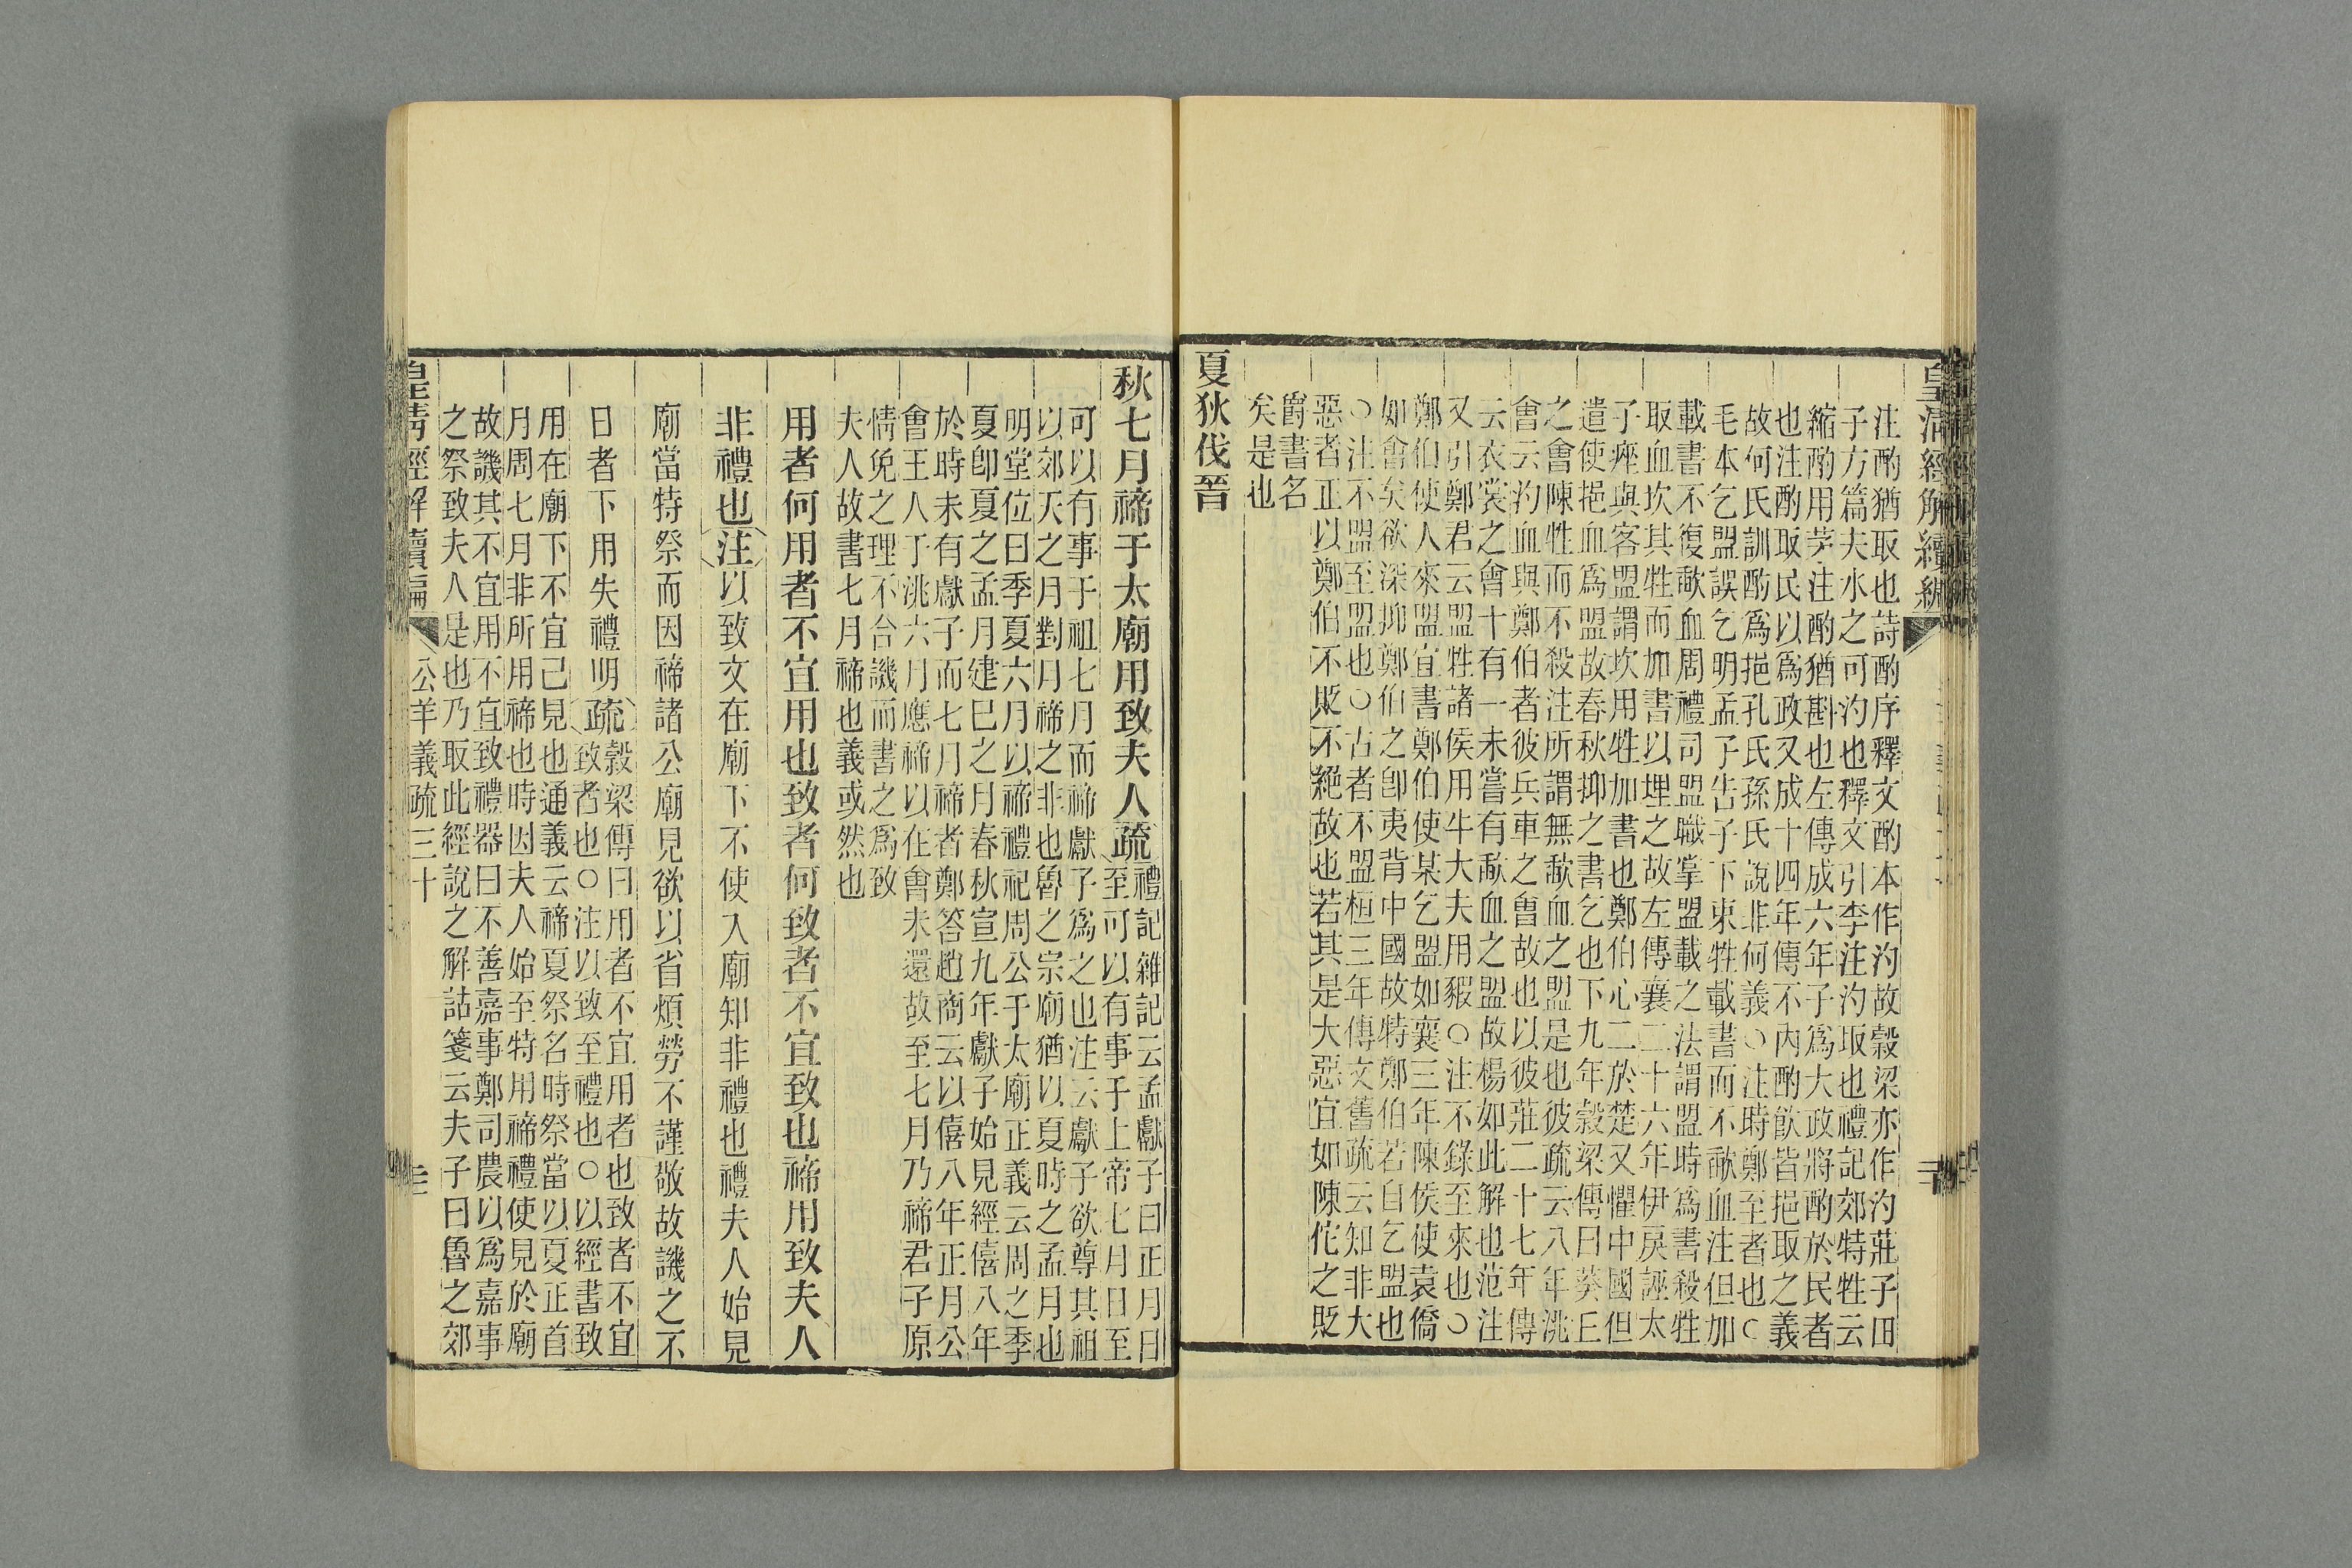 皇清經解續編
注酌猶取也詩酌序釋文酌本作汋故穀梁亦作汋莊子田
子方篇夫水之可汋也釋文引李注汋取也禮記郊特牲云
縮酌用茅注酌猶斟也左傳成六年子爲大政將酌於民者
也注酌取民以爲政又成十四年傳不內酌飲皆挹取之義
故何氏訓酌爲挹孔氏孫氏說非何義○注時鄭至者也○
毛本乞盟誤乞明孟子告子下束牲載書而不歃血注但加
載書不復歃血周禮司盟職掌盟載之法謂盟時爲書殺牲
取血坎其牲而加書以埋之故左傳襄二十六年伊戾誣太
子痤與客盟謂坎用牲加書也鄭伯心二於楚又懼中國但
遣使挹血爲盟故春秋抑之書乞也下九年穀梁傳曰葵丘
之會陳牲而不殺注所謂無歃血之盟是也彼疏云八年洮
會云汋血與鄭伯者彼兵車之會故也以彼莊二十七年傳
云衣裳之會十有一未嘗有歃血之盟故楊如此解也范注
又引鄭君云盟牲諸侯用牛大夫用豭○注不錄至來也○
鄭伯使人來盟宜書鄭伯使某乞盟如襄三年陳侯使袁僑
如會矣欲深抑鄭伯之卽夷背中國故特鄭伯若自乞盟也
○注不盟至盟也○古者不盟桓三年傳文舊疏云知非大
惡者正以鄭伯不貶不絕故也若其是大惡宜如陳佗之貶
爵書名
矣是也
夏狄伐晉
秋七月禘于太廟用致夫人疏
禮記雜記云孟獻子曰正月日
至可以有事于上帝七月日至
可以有事于祖七月而禘獻子爲之也注云獻子欲尊其祖
以郊天之月對月禘之非也魯之宗廟猶以夏時之孟月也
明堂位曰季夏六月以禘禮祀周公于太廟正義云周之季
夏卽夏之孟月建巳之月春秋宣九年獻子始見經僖八年
於時未有獻子而七月禘者鄭答趙商云以僖八年正月公
會王人于洮六月應禘以在會未還故至七月乃禘君子原
情免之理不合譏而書之爲致
夫人故書七月禘也義或然也
用者何用者不宜用也致者何致者不宜致也禘用致夫人
非禮也注以致文在廟下不使入廟知非禮也禮夫人始見
廟當特祭而因禘諸公廟見欲以省煩勞不謹敬故譏之不
日者下用失禮明疏
穀梁傳曰用者不宜用者也致者不宜
致者也○注以致至禮也○以經書致
用在廟下不宜己見也通義云禘夏祭名時祭當以夏正首
月周七月非所用禘也時因夫人始至特用禘禮使見於廟
故譏其不宜用不宜致禮器曰不善嘉事鄭司農以爲嘉事
之祭致夫人是也乃取此經說之解詁箋云夫子曰魯之郊
皇清經解續編
公羊義疏三十